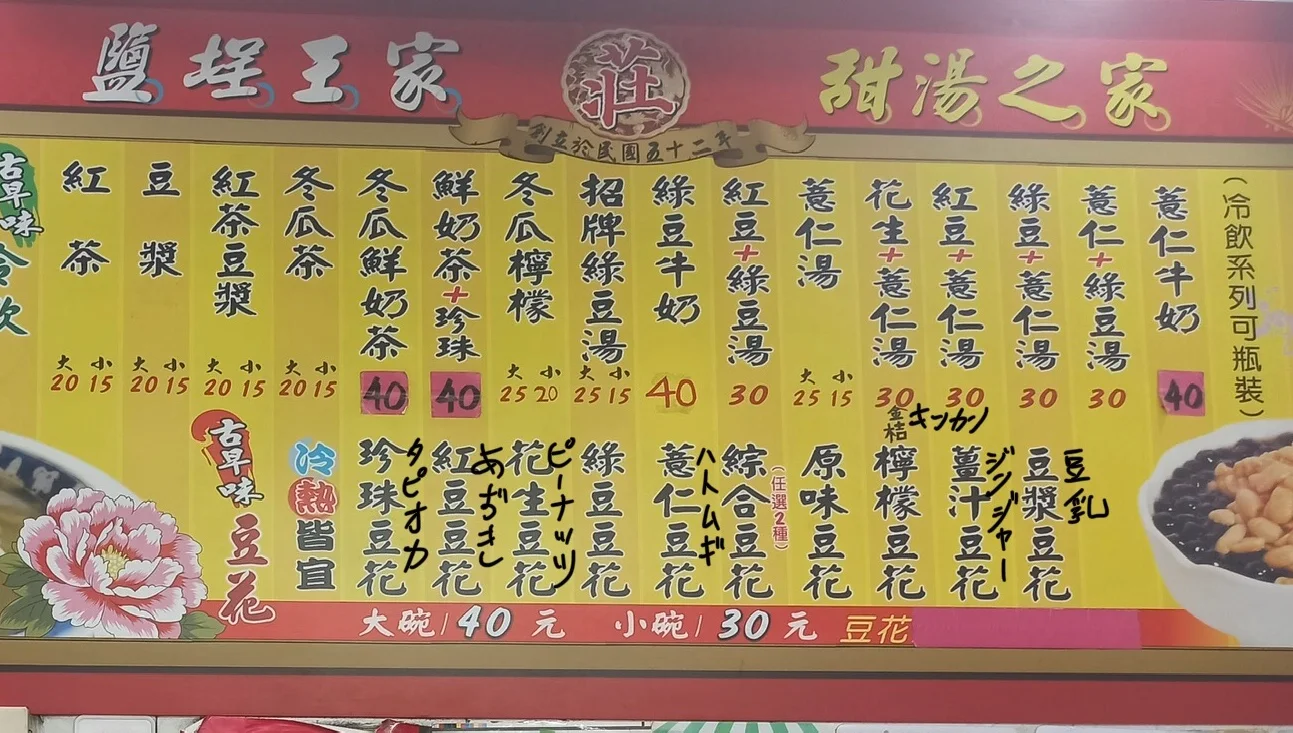 鹽埕王家
莊
甜湯之家
創立於民國五十二年
古早味
冷飲
紅茶
大 小
20 15
豆漿
大 小
20 15
紅茶豆漿
大 小
20 15
冬瓜茶
大 小
20 15
冬瓜鮮奶茶
40
鮮奶茶+珍珠
40
冬瓜檸檬
大 小
25 20
招牌綠豆湯
大 小
25 15
綠豆牛奶
40
紅豆+綠豆湯
30
薏仁湯
大 小
25 15
花生+薏仁湯
30
紅豆+薏仁湯
30
綠豆+薏仁湯
30
薏仁+綠豆湯
30
薏仁牛奶
40
(冷飲系列可瓶裝)
古早味
豆花
冷熱皆宜
珍珠豆花
タピオカ
紅豆豆花
あづきし
花生豆花
ピーナッツ
綠豆豆花
薏仁豆花
ハトムギ
綜合豆花
(任選2種)
原味豆花
金桔
キンカン
檸檬豆花
薑汁豆花
ジンジャー
豆漿豆花
豆乳
大碗/40元 小碗/30元 豆花